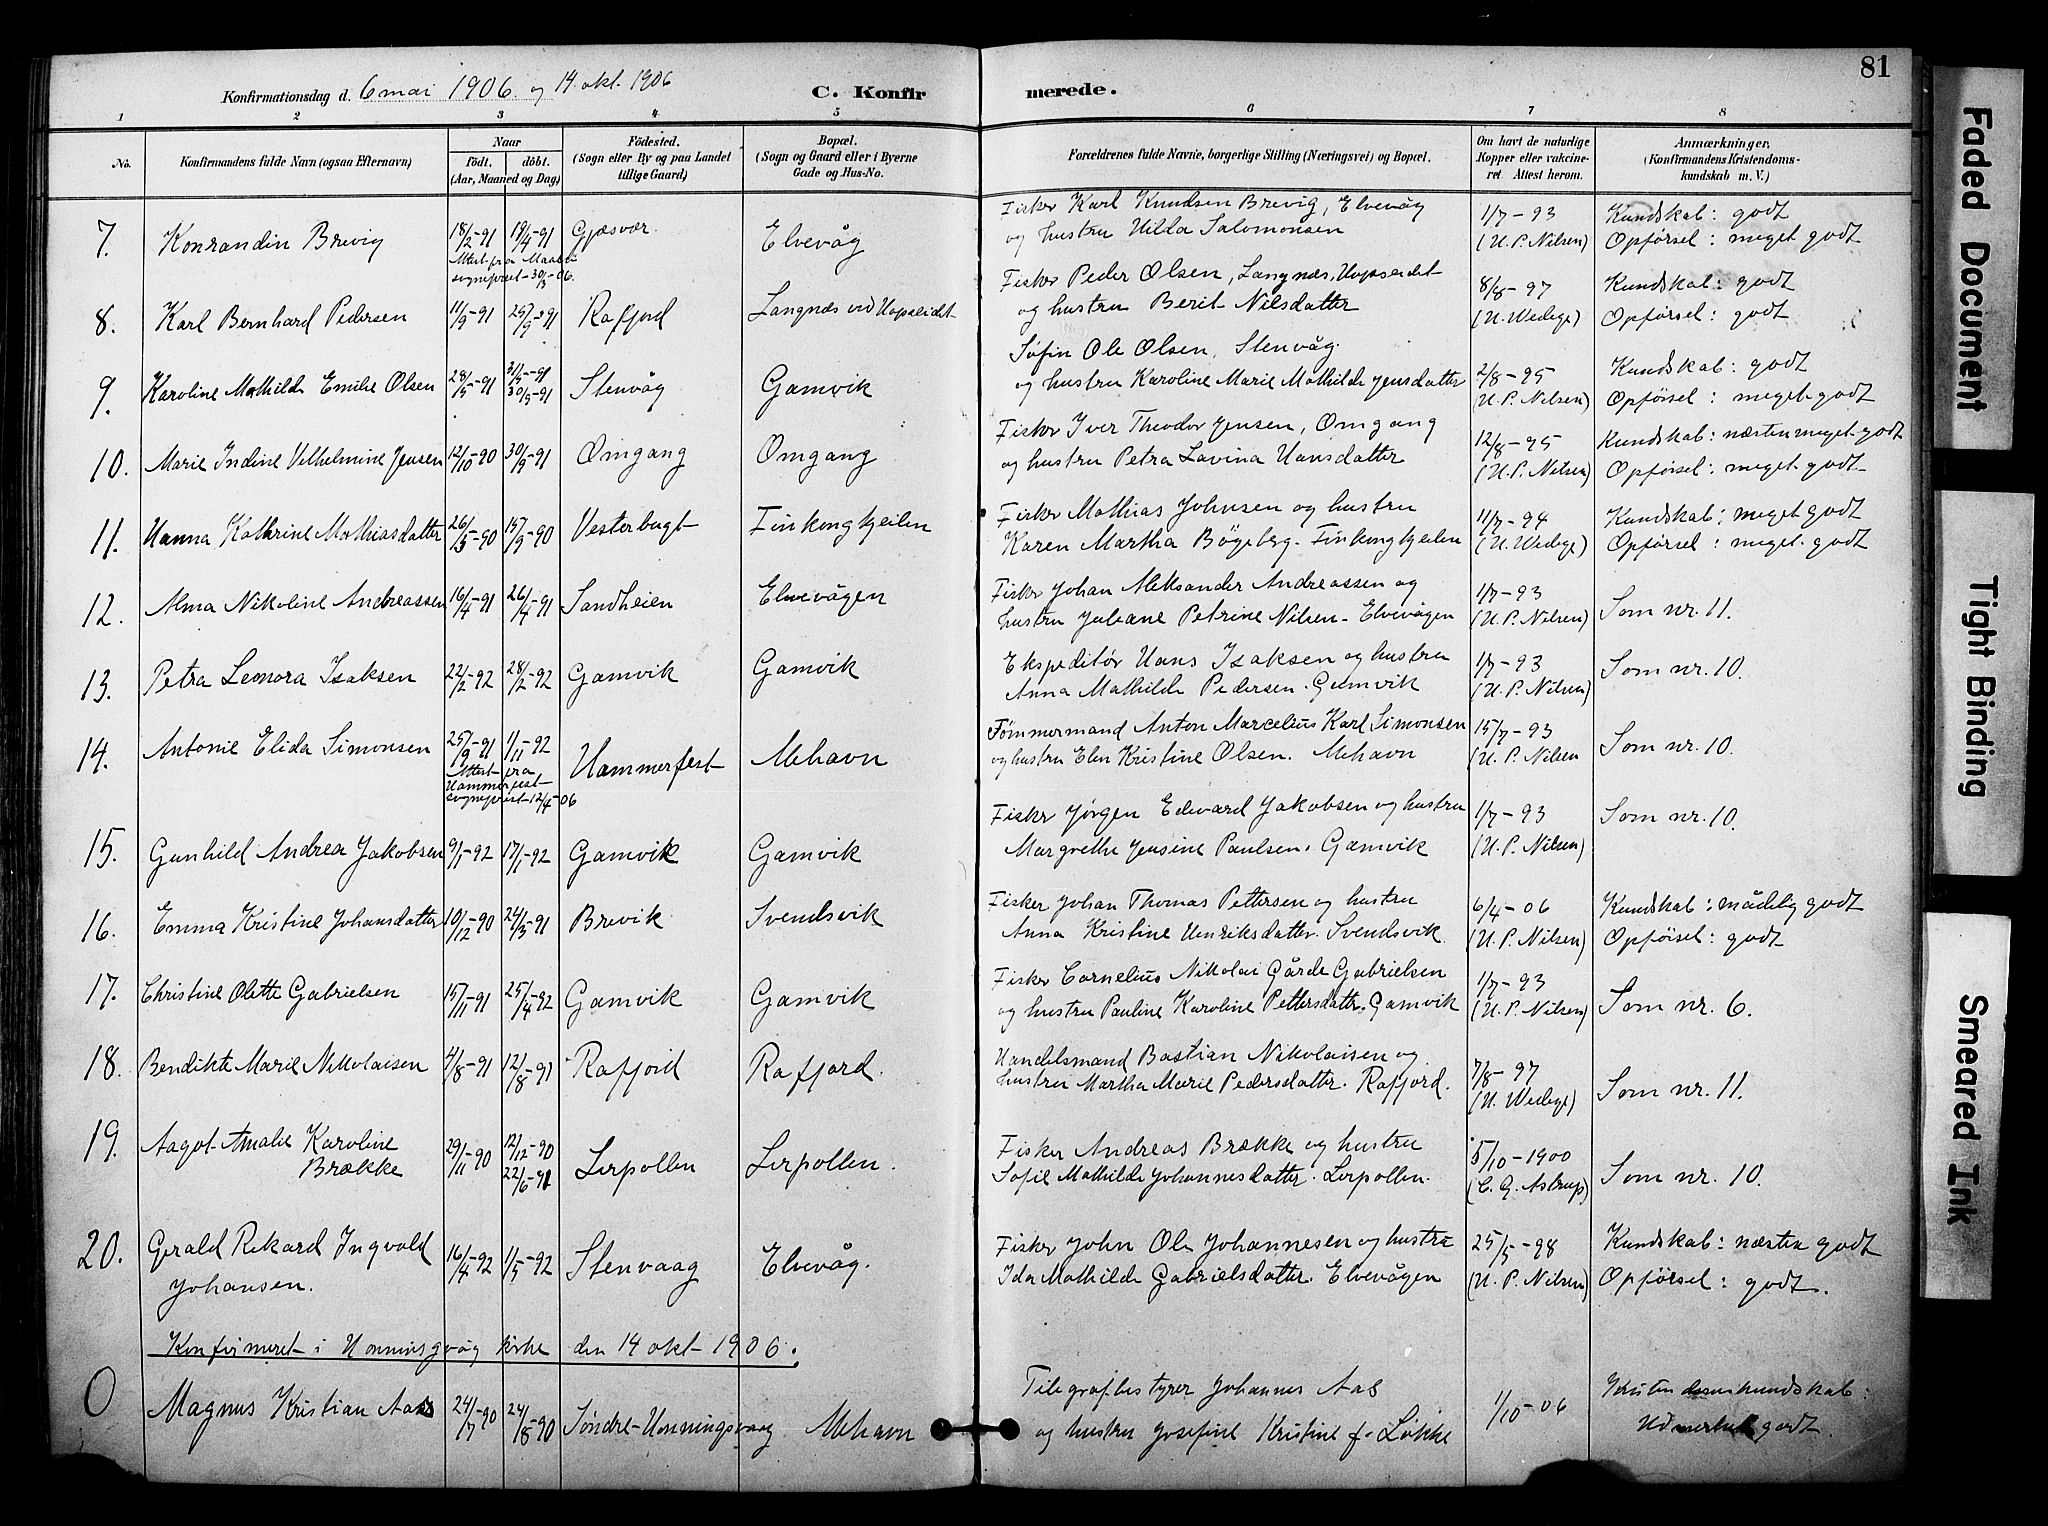 81
Konfirmationsdag d. 6 mai 1906. og 14. okt. 1906
C. Konfir merede.
1 2 3 4 5 6 7 8
No. Konfirmandens fulde Navn (ogsaa Efternavn) Naar Födt. döbt. (Aar, Maaned og Dag) Födested. (Sogn eller By og paa Landet tillige Gaard) Bopæl. (Sogn og Gaard eller i Byerne Gade og Hus-No. Forældrenes fulde Navne, borgerlige Stilling (Næringsvei) og Bopæl. Om havt de naturlige Kopper eller vakcineret. Attest herom. Anmærkninger. (Konfirmandens Kristendomskundskab m. V.)
7. Konrandin Brevig 18/2-91 19/4-91 Gjæsvær. Elvevåg Fisker Karl Knudsen Brevig, Elvevåg 1/7-93 Kundskab: godt
Attest fra Maasö sogneprest 30/3-06. og hustru Hilda Salomonsen (H. P. Nilsen) Opførsel: meget godt
8. Karl Bernhard Pedersen 11/9-91 25/9-91 Rafjord Langnæs ved Hopseidet Fisker Peder Olsen, Langnæs, Hopseidet 8/8-97 Kundskab: godt
og hustru Berit Nilsdatter (H. Wedege) Opførsel: godt
9. Karoline Mathilde Emilie Olsen 28/5-91 31/5-91 30/9-91 Stenvåg Gamvik Søfin Ole Olsen, Stenvåg. 2/8-95 Kundskab: godt
og hustru Karoline Marie Mathilde Jensdatter (H. P. Nilsen) Opførsel: meget godt
10. Marie Indine Vilhelmine Jensen 12/10-90 30/9-91 Omgang Omgang Fisker Iver Theodor Jensen, Omgang 12/8-95 Kundskab: næsten meget godt
og hustru Petra Lavina Hansdatter (H. P. Nilsen) Opførsel: meget godt
11. Hanna Kathrine Mathiasdatter 26/3-90 15/9-90 Vesterbugt Finkongkjeilen Fisker Mathias Johnsen og hustru 11/7-94 Kundskab: meget godt
Karen Martha Bögeberg. Finkongkjeilen (H. Wedege) Opførsel: meget godt
12. Alma Nikoline Andreassen 16/4-91 26/4-91 Sandheien Elvevågen Fisker Johan Aleksander Andreassen og 1/7-93 Som nr. 11.
hustru Juliane Petrine Nilsen - Elvevågen (H. P. Nilsen)
13. Petra Leonora Isaksen 22/2-92 28/2-92 Gamvik Gamvik Ekspeditör Hans Isaksen og hustru 1/7-93 Som nr. 10.
Anna Mathilde Pedersen. Gamvik (H. P. Nilsen)
14. Antonie Elida Simonsen 25/9-91 1/11-92 Hammerfest Mehavn Tømmermand Anton Marcelius Karl Simonsen 15/7-93 Som nr. 10.
Attest fra Hammerfest sogneprest 12/4-06 og hustru Elen Kristine Olsen. Mehavn (H. P. Nilsen
15. Gunhild Andrea Jakobsen 9/1-92 17/1-92 Gamvik Gamvik Fisker Jørgen Edvard Jakobsen og hustru 1/7-93 Som nr. 10.
Margrethe Jensine Paulsen. Gamvik (H. P. Nilsen)
16. Emma Kristine Johansdatter 10/12-90 24/3-91 Brevik Svendsvik Fisker Johan Thomas Pettersen og hustru 6/4-06 Kundskab: mådelig godt
Anna Kristine Henriksdatter. Svendsvik (H. P. Nilsen) Opførsel: godt
17. Christine Olette Gabrielsen 15/11-91 25/4-92 Gamvik Gamvik Fisker Cornelius Nikolai Gårde Gabrielsen 1/7-93 Som nr. 6.
og hustru Pauline Karoline Pettersdatter. Gamvik (H. P. Nilsen)
18. Bendikte Marie Nikolaisen 4/8-91 12/8-91 Rafjord Rafjord. Handelsmand Bastian Nikolaisen og 7/8-97 Som nr. 11.
hustru Martha Marie Pedersdatter. Rafjord. (H. Wedege)
19. Aagot Amalie Karoline Brække 29/11-90 12/12-90 22/6-91 Lerpollen Lerpollen. Fisker Andreas Brække og hustru 5/10-1900 Som nr. 10.
Sofie Mathilde Johannesdatter. Lerpollen. (C. G. Astrup)
20. Gerald Rikard Ingvald Johansen. 16/4-92 1/5-92 Stenvaag Elvevåg. Fisker John Ole Johannesen og hustru 25/5-98 Kundskab: næsten godt
Ida Mathilde Gabrielsdatter. Elvevågen (H. P. Nilsen) Opførsel: godt.
Konfirmeret i Honningsvåg kirke den 14 okt 1906.
0 Magnus Kristian Aas 24/7-90 24/8-90 Søndre-Honningsvaag Mehavn Telegrafbestyrer Johannes Aas 1/10-06 Kristendomskundskab:
og hustru Josefine Kristine f. Løkke Udmerket godt.
Faded Document
Tight Binding
Smeared Ink